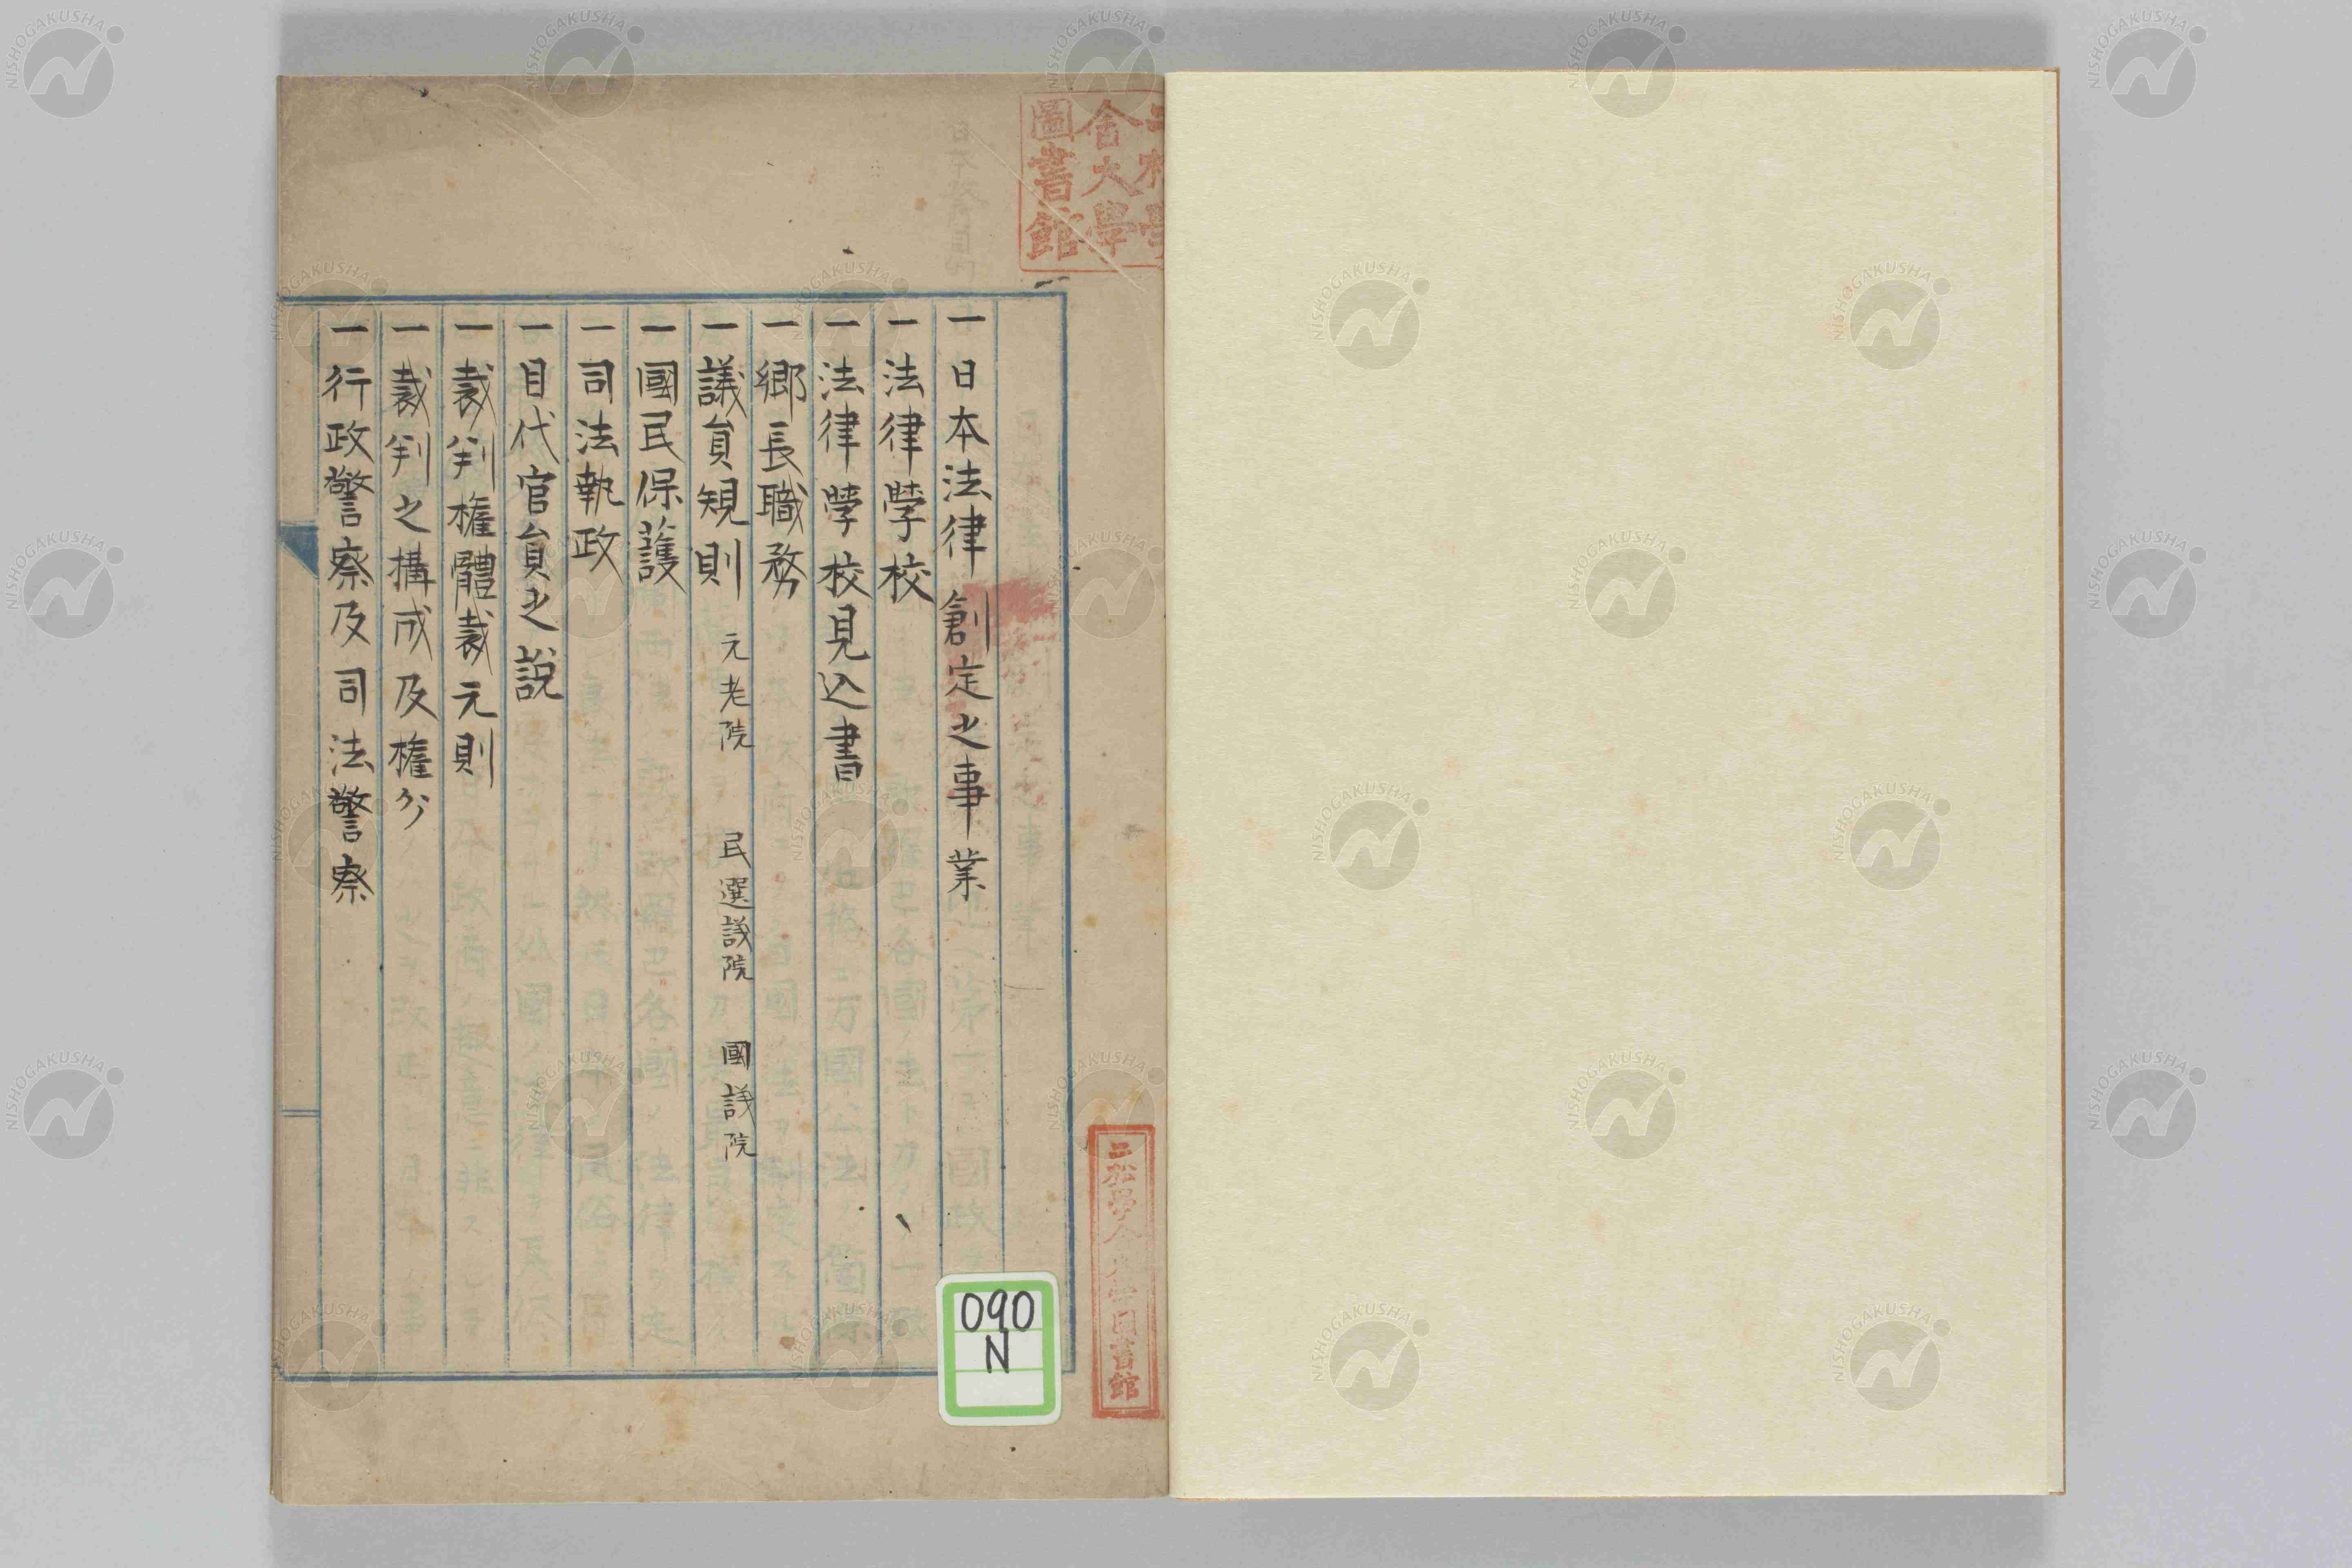 一 日本法律創定之事業
一 法律學校
一 法律學校見込書
一 郷長職務
一 議員規則 元老院 民選議院 國議院
一 國民保護
一 司法執政
一 目代官員之說
一 裁判權體裁元則
一 裁判之構成及權分
一 行政警察及司法警察
舍大學
圖書館
二松學舍大學圖書館
090
N
NISHOGAKUSHA